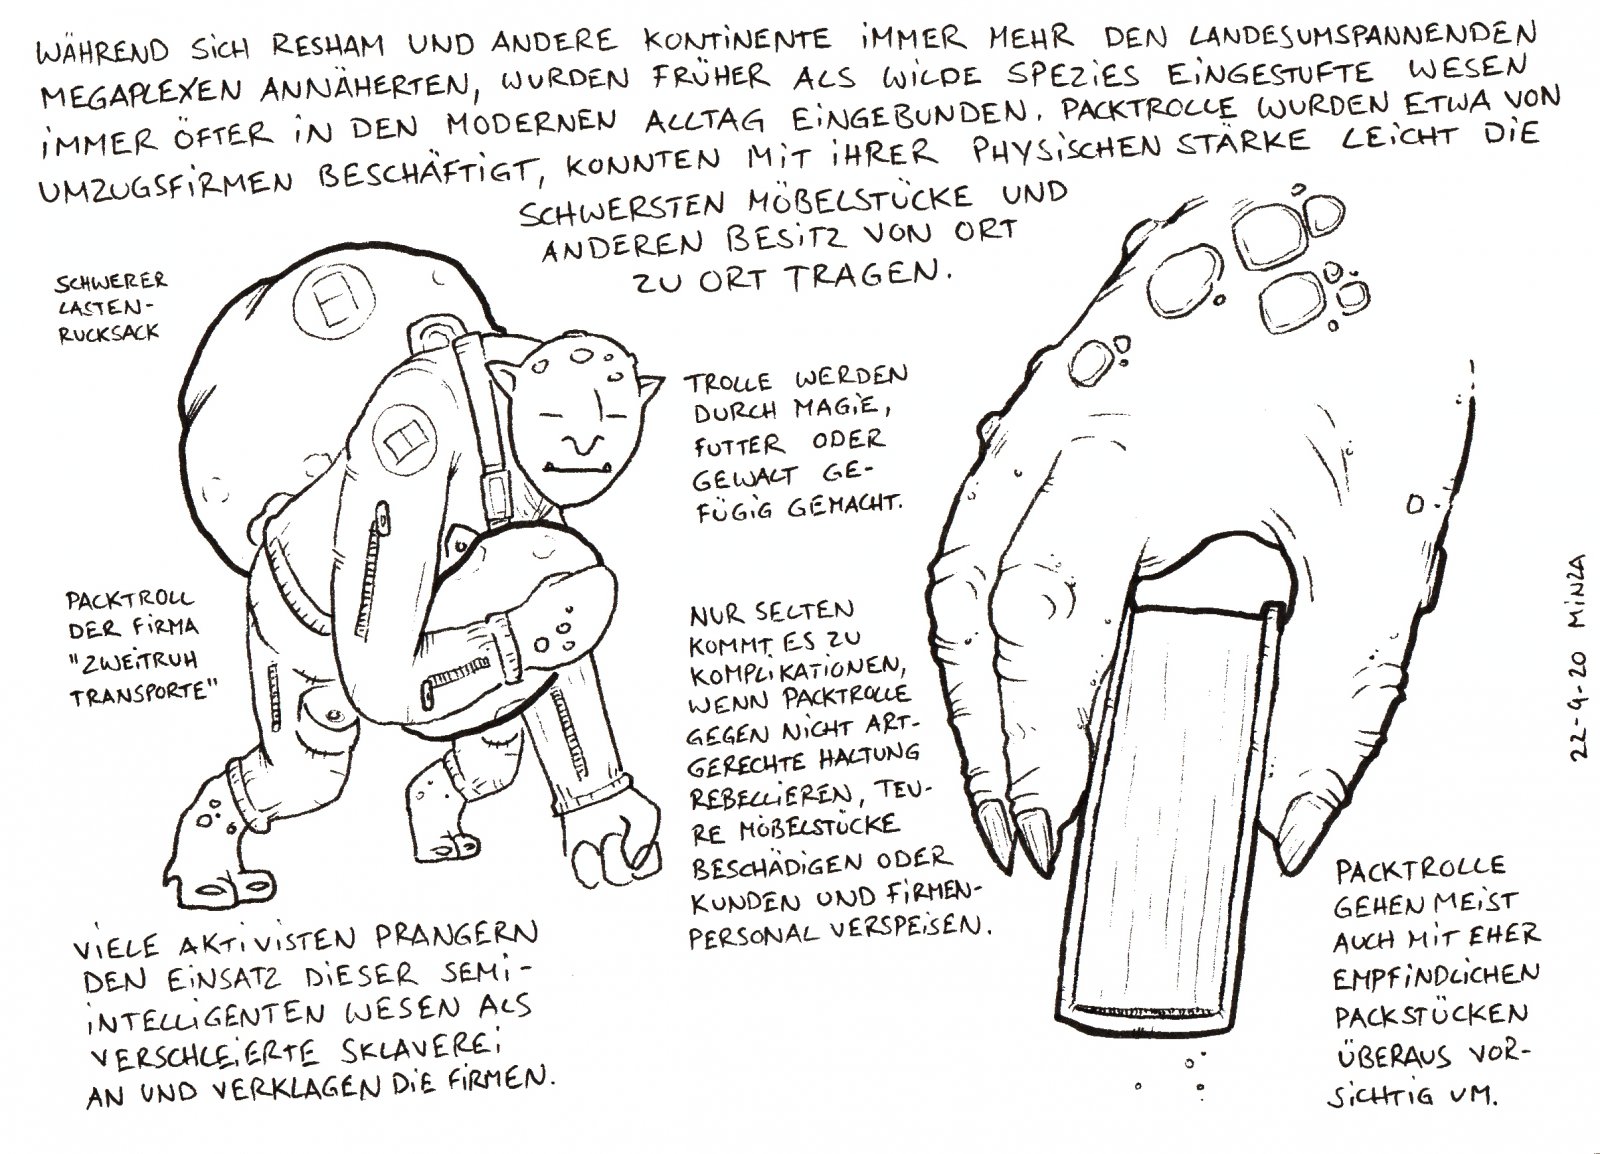 WÄHREND SICH RESHAM UND ANDERE KONTINENTE IMMER MEHR DEN LANDESUMSPANNENDEN
MEGAPLEXEN ANNÄHERTEN, WURDEN FRÜHER ALS WILDE SPEZIES EINGESTUFTE WESEN
IMMER ÖFTER IN DEN MODERNEN ALLTAG EINGEBUNDEN. PACKTROLLE WURDEN ETWA VON
UMZUGSFIRMEN BESCHÄFTIGT, KONNTEN MIT IHRER PHYSISCHEN STÄRKE LEICHT DIE
SCHWERSTEN MÖBELSTÜCKE UND
ANDEREN BESITZ VON ORT
ZU ORT TRAGEN.
SCHWERER
LASTEN-
RUCKSACK
TROLLE WERDEN
DURCH MAGIE,
FUTTER ODER
GEWALT GE-
FÜGIG GEMACHT.
PACKTROLL
DER FIRMA
"ZWEITRUH
TRANSPORTE"
NUR SELTEN
KOMMT ES ZU
KOMPLIKATIONEN,
WENN PACKTROLLE
GEGEN NICHT ART-
GERECHTE HALTUNG
REBELLIEREN, TEU-
RE MÖBELSTÜCKE
BESCHÄDIGEN ODER
KUNDEN UND FIRMEN-
PERSONAL VERSPEISEN.
VIELE AKTIVISTEN PRANGERN
DEN EINSATZ DIESER SEMI-
INTELLIGENTEN WESEN ALS
VERSCHLEIERTE SKLAVEREI
AN UND VERKLAGEN DIE FIRMEN.
PACKTROLLE
GEHEN MEIST
AUCH MIT EHER
EMPFINDLICHEN
PACKSTÜCKEN
ÜBERAUS VOR-
SICHTIG UM.
22-9-20 MINZA